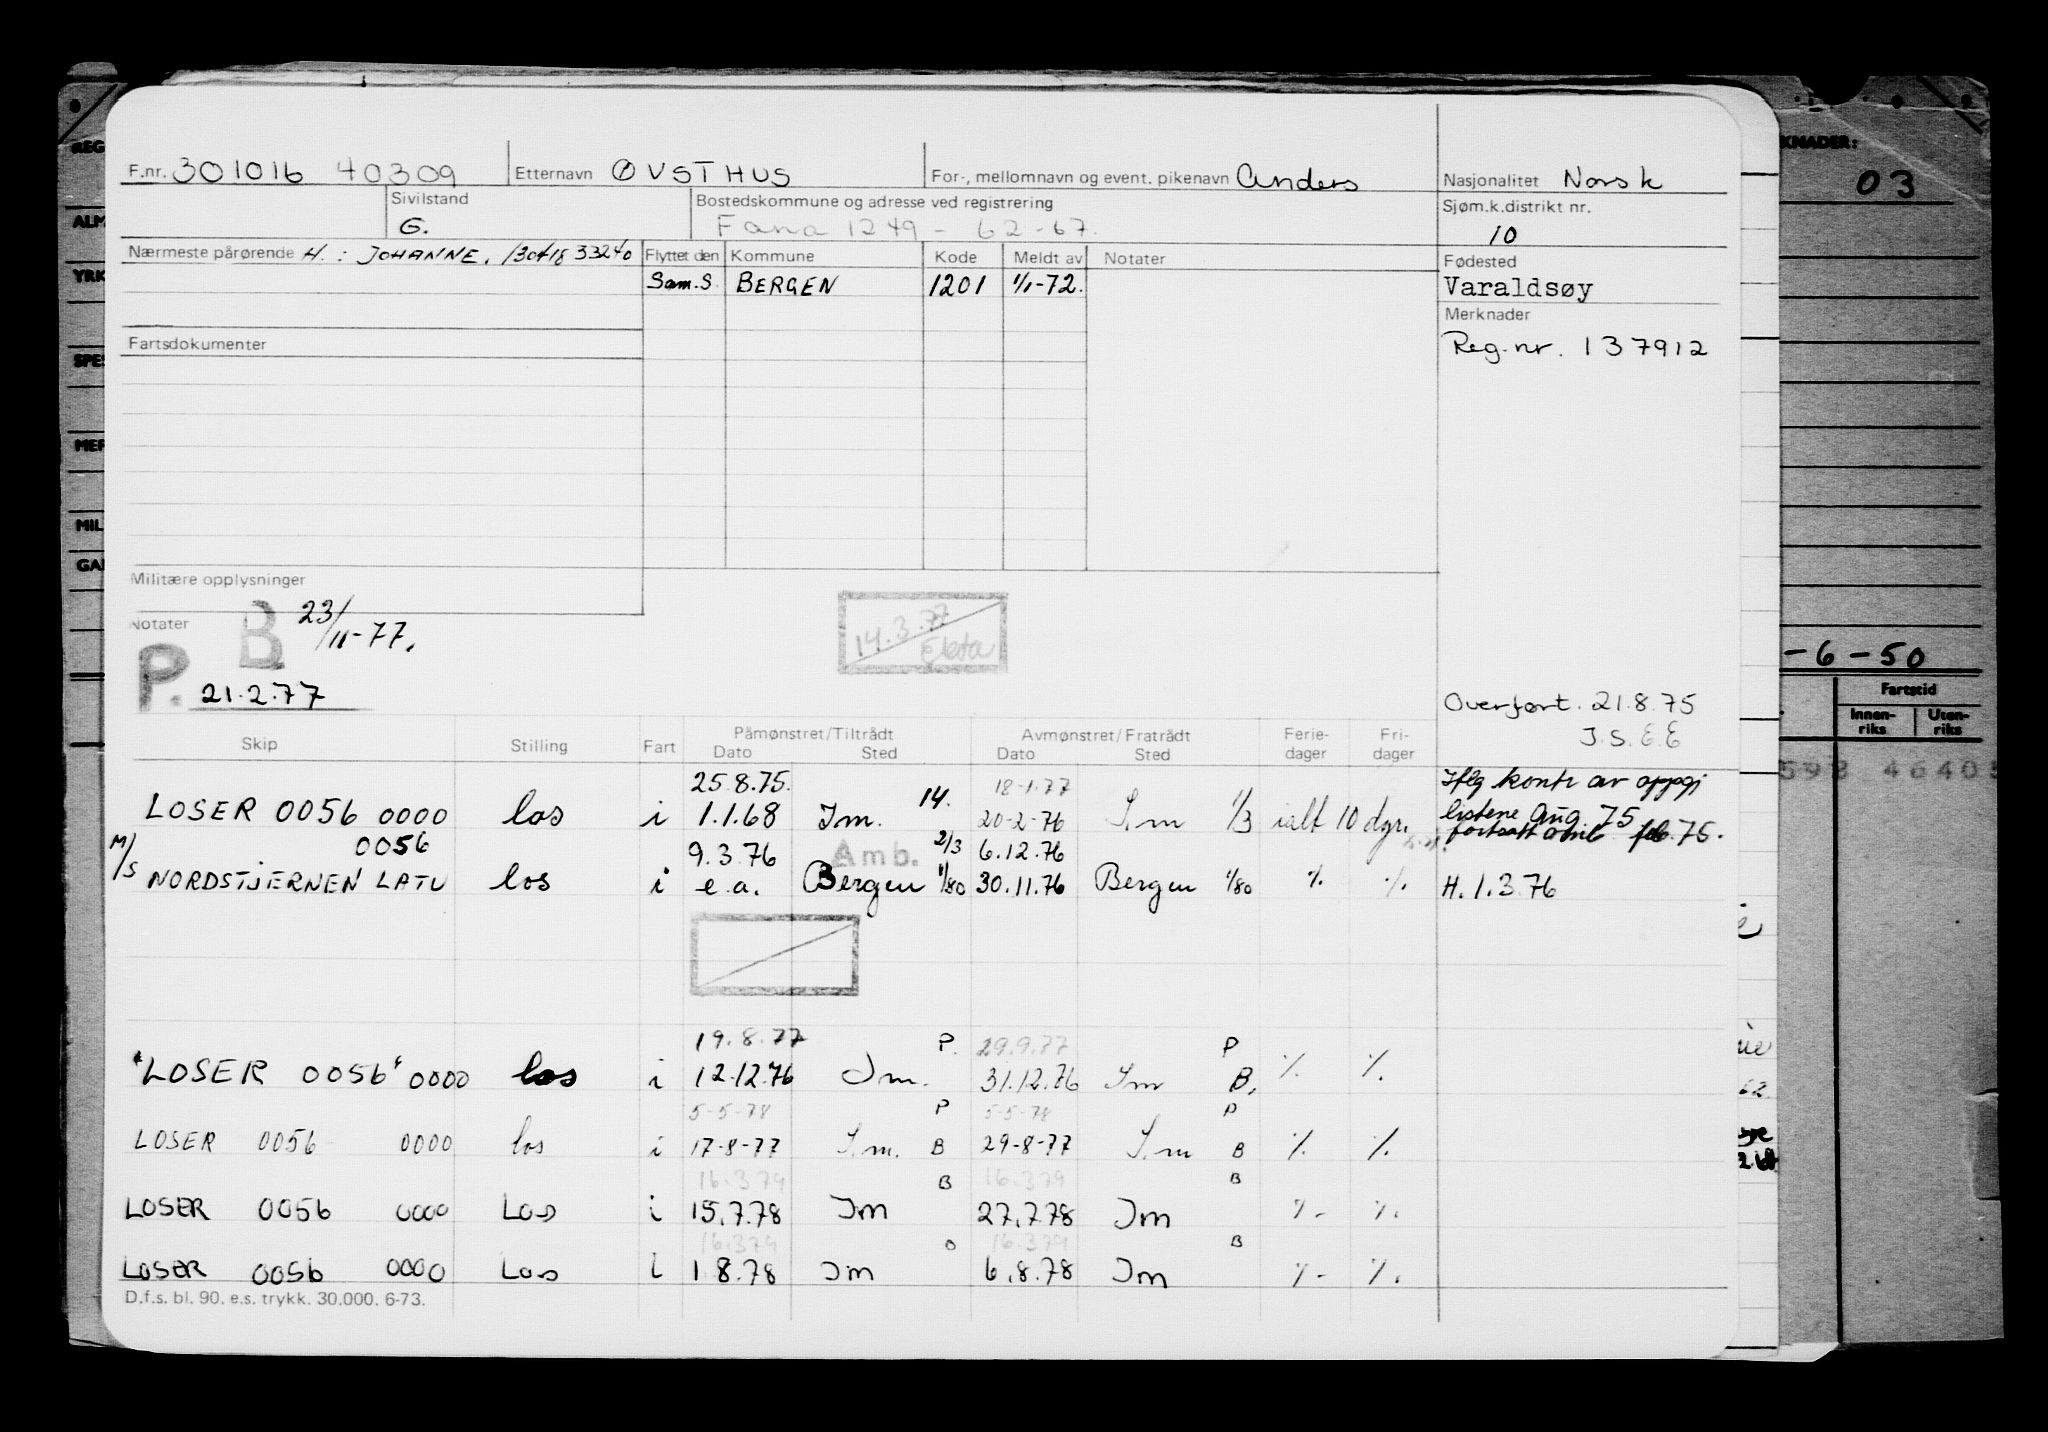 F.nr. 301016 40309 Etternavn ØVSTHUS For-, mellomnavn og event. pikenavn Anders Nasjonalitet Norsk
Sivilstand G. Bostedskommune og adresse ved registrering Fana 1249 - 62-67. Sjøm.k.distrikt nr. 10
Nærmeste pårørende H. : JOHANNE, 130418 33240 Flyttet den Kommune Kode Meldt av Notater Fødested
Sam.S. BERGEN 1201 1/1-72. Varaldsøy
Merknader
Fartsdokumenter Reg.nr. 137912
Militære opplysninger
Notater B 23/11-77. 14.3.77
P. 21.2.77
Overført. 21.8.75
J.S.E.E
Skip Stilling Fart Påmønstret/Tiltrådt Dato Sted Avmønstret/Fratrådt Dato Sted Ferie-dager Fri-dager
25.8.75. 18-1.77 Iflg kontr av oppgj
LOSER 0056 0000 los i 1.1.68 Im. 14. 20-2-76 I.m 1/3 ialt 10 dgr. listene Aug. 75
fortsatt feb. 76.
0056 9.3.76 Amb. 2/3 6.12.76
M/S NORDSTJERNEN LATU los i e.a. Bergen 1/80 30.11.76 Bergen 1/80 % % H. 1.3.76
19.8.77 P. 29.9.77 P
"LOSER 0056" 0000 los i 12.12.76 Im. 31.12.76 Im B. % %
5-5-78 P 5-5-78 P
LOSER 0056 0000 los i 17-8-77 I.m. B 29-8-77 I.m B % %
16.3.79 B 16.3.79 B
LOSER 0056 0000 Los i 15.7.78 Im 27.7.78 Im %- %.
16.3.79 B 16.3.79 B
LOSER 0056 0000 Los i 1.8.78 Im 6.8.78 Im %- %.
D.f.s. bl. 90. e.s. trykk. 30.000. 6-73.
REG
ALM
YRK
SPES
MER
MIL
GA
KNADER:
03
-6-50
Fartstid
Innen-riks Uten-riks
598 46405